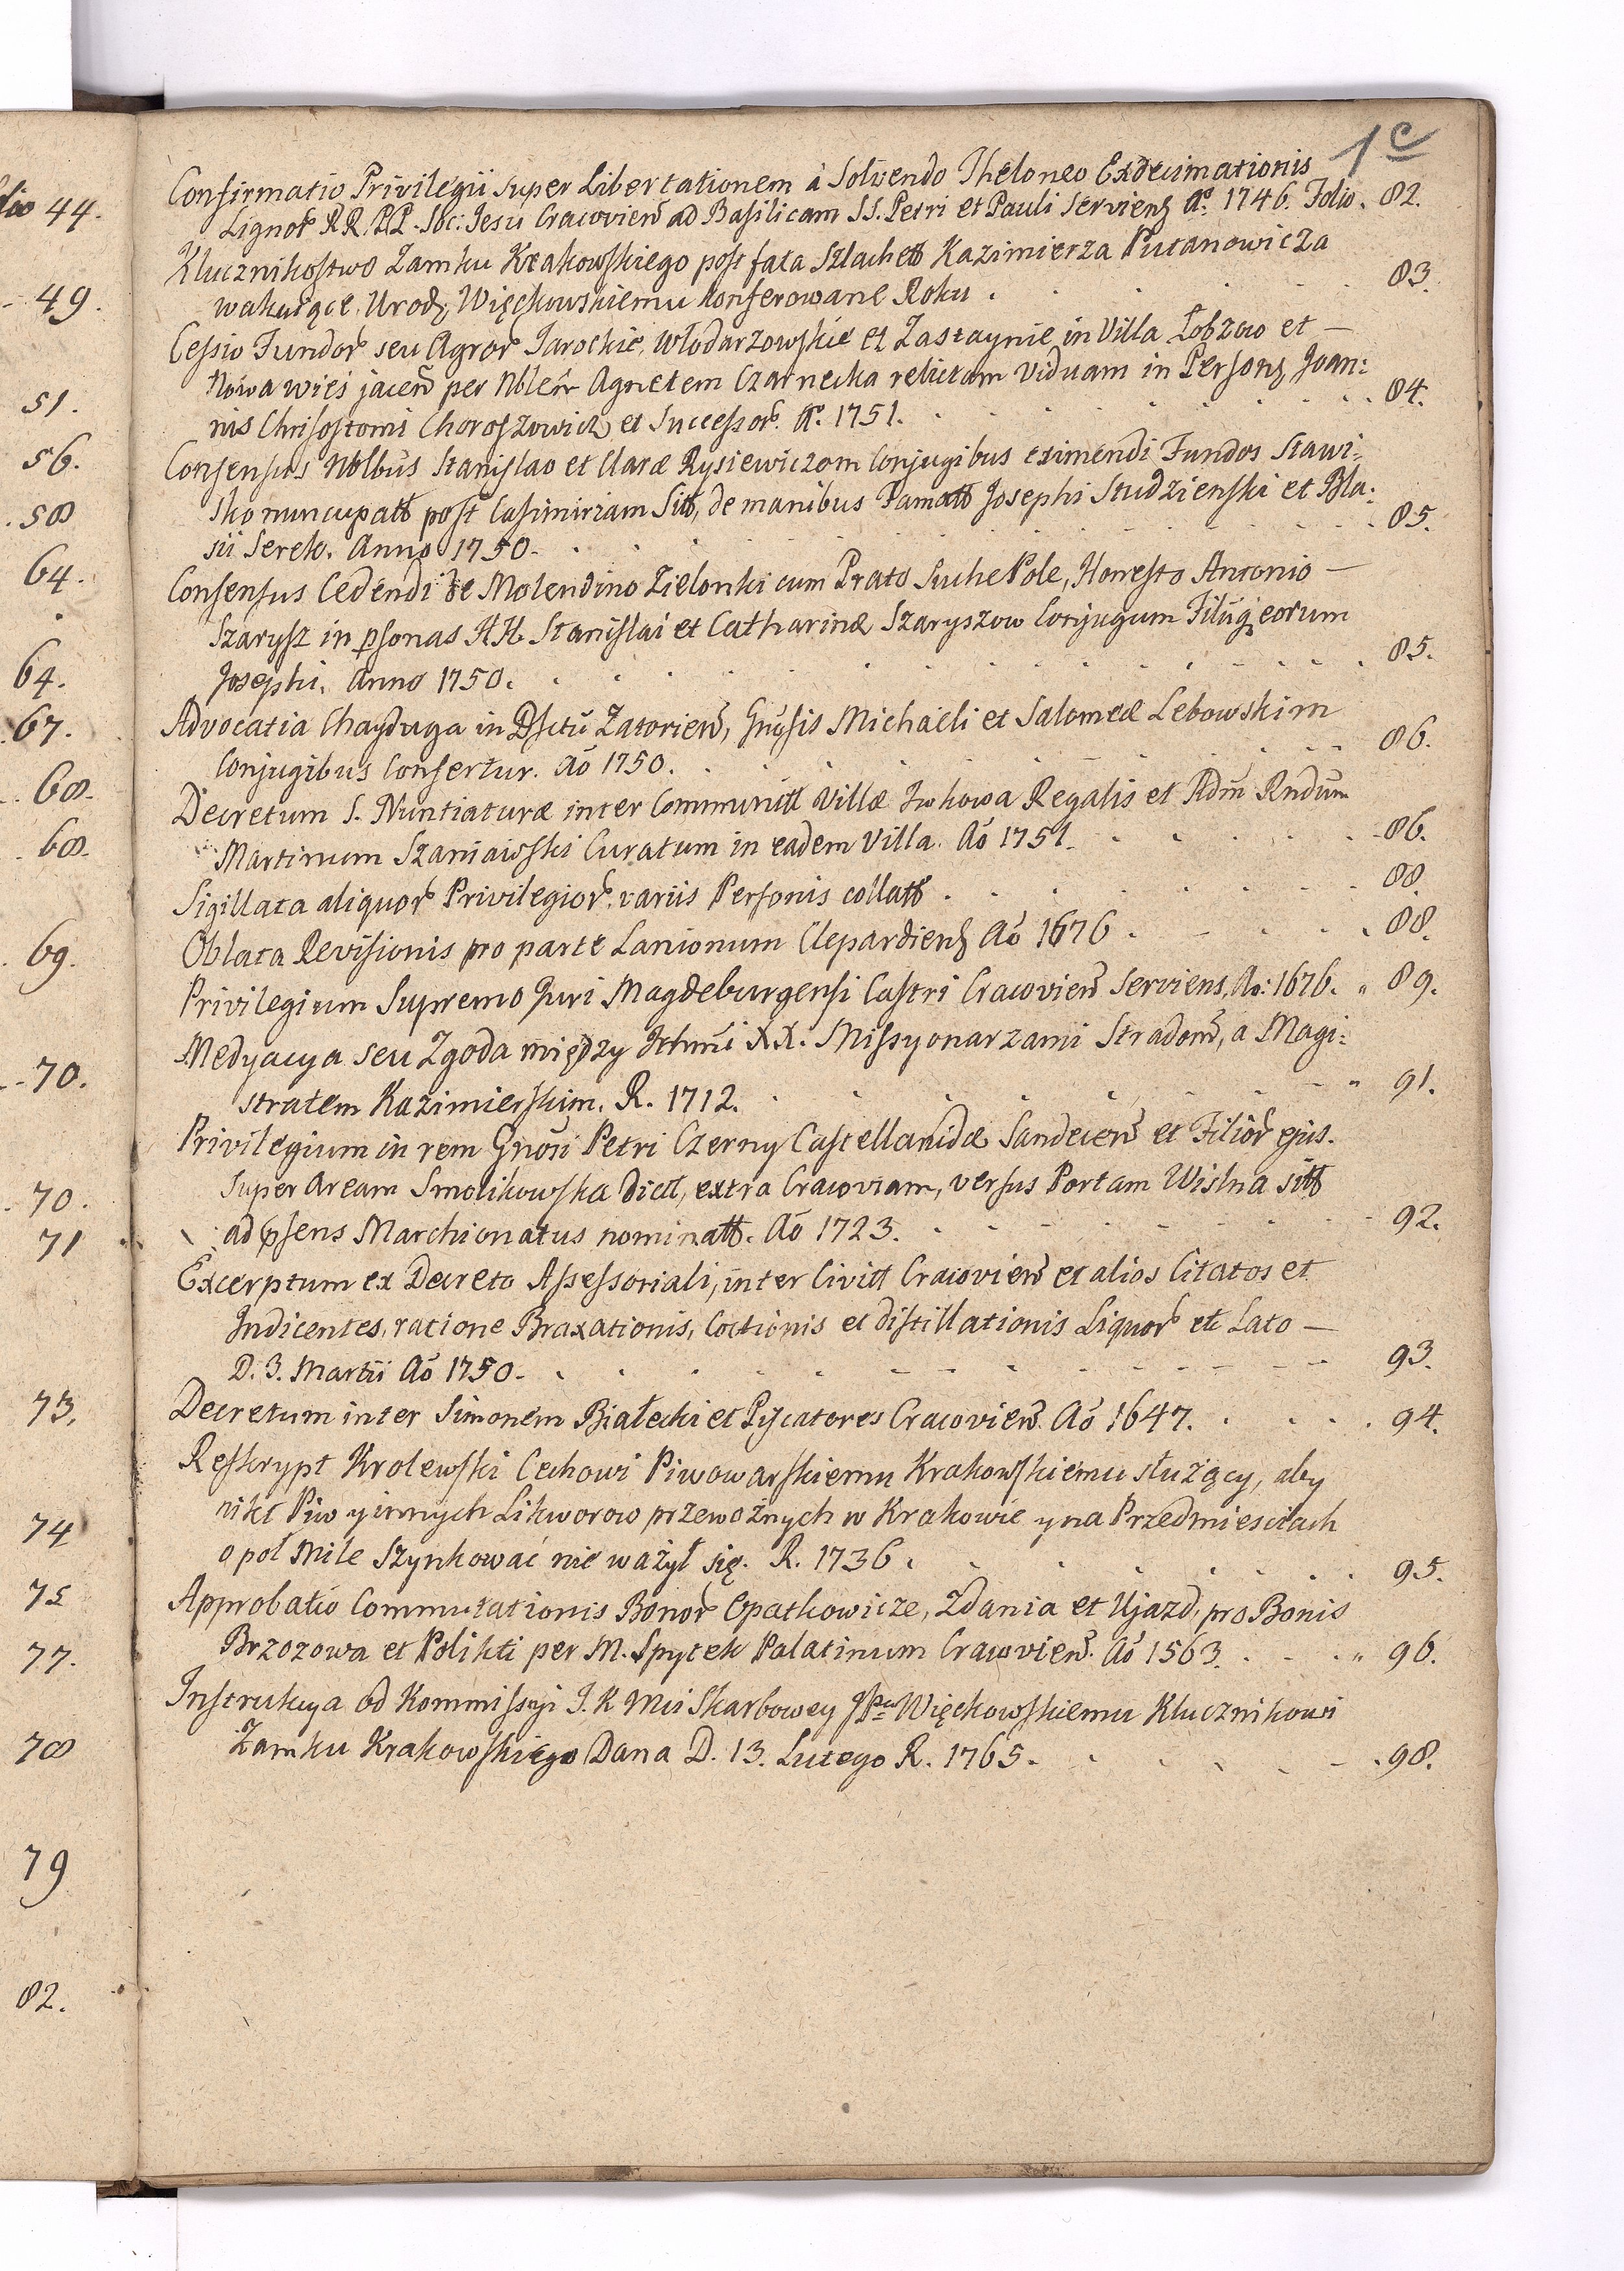 1c
Confirmatio Privilegii super Libertationem à Solvendo Theloneo Exdecimationis
Lignor RR. PP. Soc: Jesu Cracovien ad Basilicam SS. Petri et Pauli Servien Ao. 1746. Folio. 82.
Klucznikostwo Zamku Krakowskiego post fata Szlachett Kazimierza Putanowicza
wakuiące, Urodz, Więckowskiemu konferowane Roku . 83.
Cessio Fundor seu Agror Jarockie, Włodarzowskie et Zastaynie in Villa Łobzow et —
Nowa wies jacen per Nblem Agnetem Czarnecka relictam Viduam in Person Joan:
nis Chrisostomi Choroszowicz et Successor. Ao. 1751. 84.
Consensus Nblbus Stanislao et Claræ Rysiewiczom Conjugibus eximendi Fundos Stawi:
sko nuncupatt post Casimiriam Sitt, de manibus Famatt Josephi Studzienski et Bla:
sii Serek. Anno 1750. 85.
Consensus Cedendi de Molendino Zielonki cum Prato Suche Pole, Honesto Antonio —
Szarysz in psonas HH. Stanislai et Catharinæ Szaryszow Conjugum Filiiq eorum
Josephi. Anno 1750. 85.
Advocatia Chayduga in Dsctu Zatorien, Gnosis Michaeli et Salomeæ Lebowskim
Conjugibus Confertur. Ao 1750. 86.
Decretum S. Nuntiaturæ inter Communitt Villæ Iwkowa Regalis et Adm Rndum
Martinum Szaniawski Curatum in eadem Villa. Ao 1751. 86.
Sigillata aliquor Privilegior variis Personis collatt . 88.
Oblata Revisionis pro parte Lanionum Clepardien Ao 1676 . 88.
Privilegium Supremo Juri Magdeburgensi Castri Cracovien Serviens, Ao: 1676. 89.
Medyacya seu Zgoda między XX. Missyonarzami Stradom, a Magi:
stratem Kazimierskim. R. 1712. 91.
Privilegium in rem Gnosi Petri Czerny Castellanidæ Sandecien et Filior ejus.
super Aream Smolikowska dictt, extra Cracoviam, versus Portam Wislna sitt
ad psens Marchionatus nominatt. Ao 1723. 92.
Excerptum ex Decreto Assessoriali, inter Civitt Cracovien et alios Citatos et
Indicentes, ratione Braxationis, Coctionis et distillationis Liquor etc Lato —
D. 3. Martii Ao 1750. 93.
Decretum inter Simonem Białecki et Piscatores Cracovien. Ao 1647. 94.
Reskrypt Krolewski Cechowi Piwowarskiemu Krakowskiemu służący, aby
nikt Piw y innych Likworow przewoźnych w Krakowie y na Przedmiesciach
o poł Mile Szynkować nie ważył się. R. 1736 . 95.
Approbatio Commutationis Bonor Opatkowicze, Zdania et Ujazd, pro Bonis
Brzozowa et Polikti per M. Spytek Palatinum Cracovien. Ao 1563. 96.
Instrukcya od Kommissyi J. K Mci Skarbowey JPu Więckowskiemu Klucznikowi
Zamku Krakowskiego Dana D. 13. Lutego R. 1765. 98.
44.
49.
51.
56.
58
64.
64.
67.
68.
68.
69.
70.
70.
71
73.
74
75
77.
78
79
82.